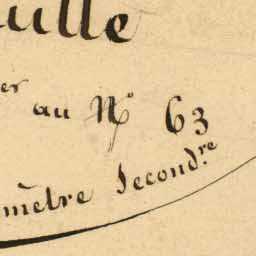 uille
er au N° 63
mètre Second.re